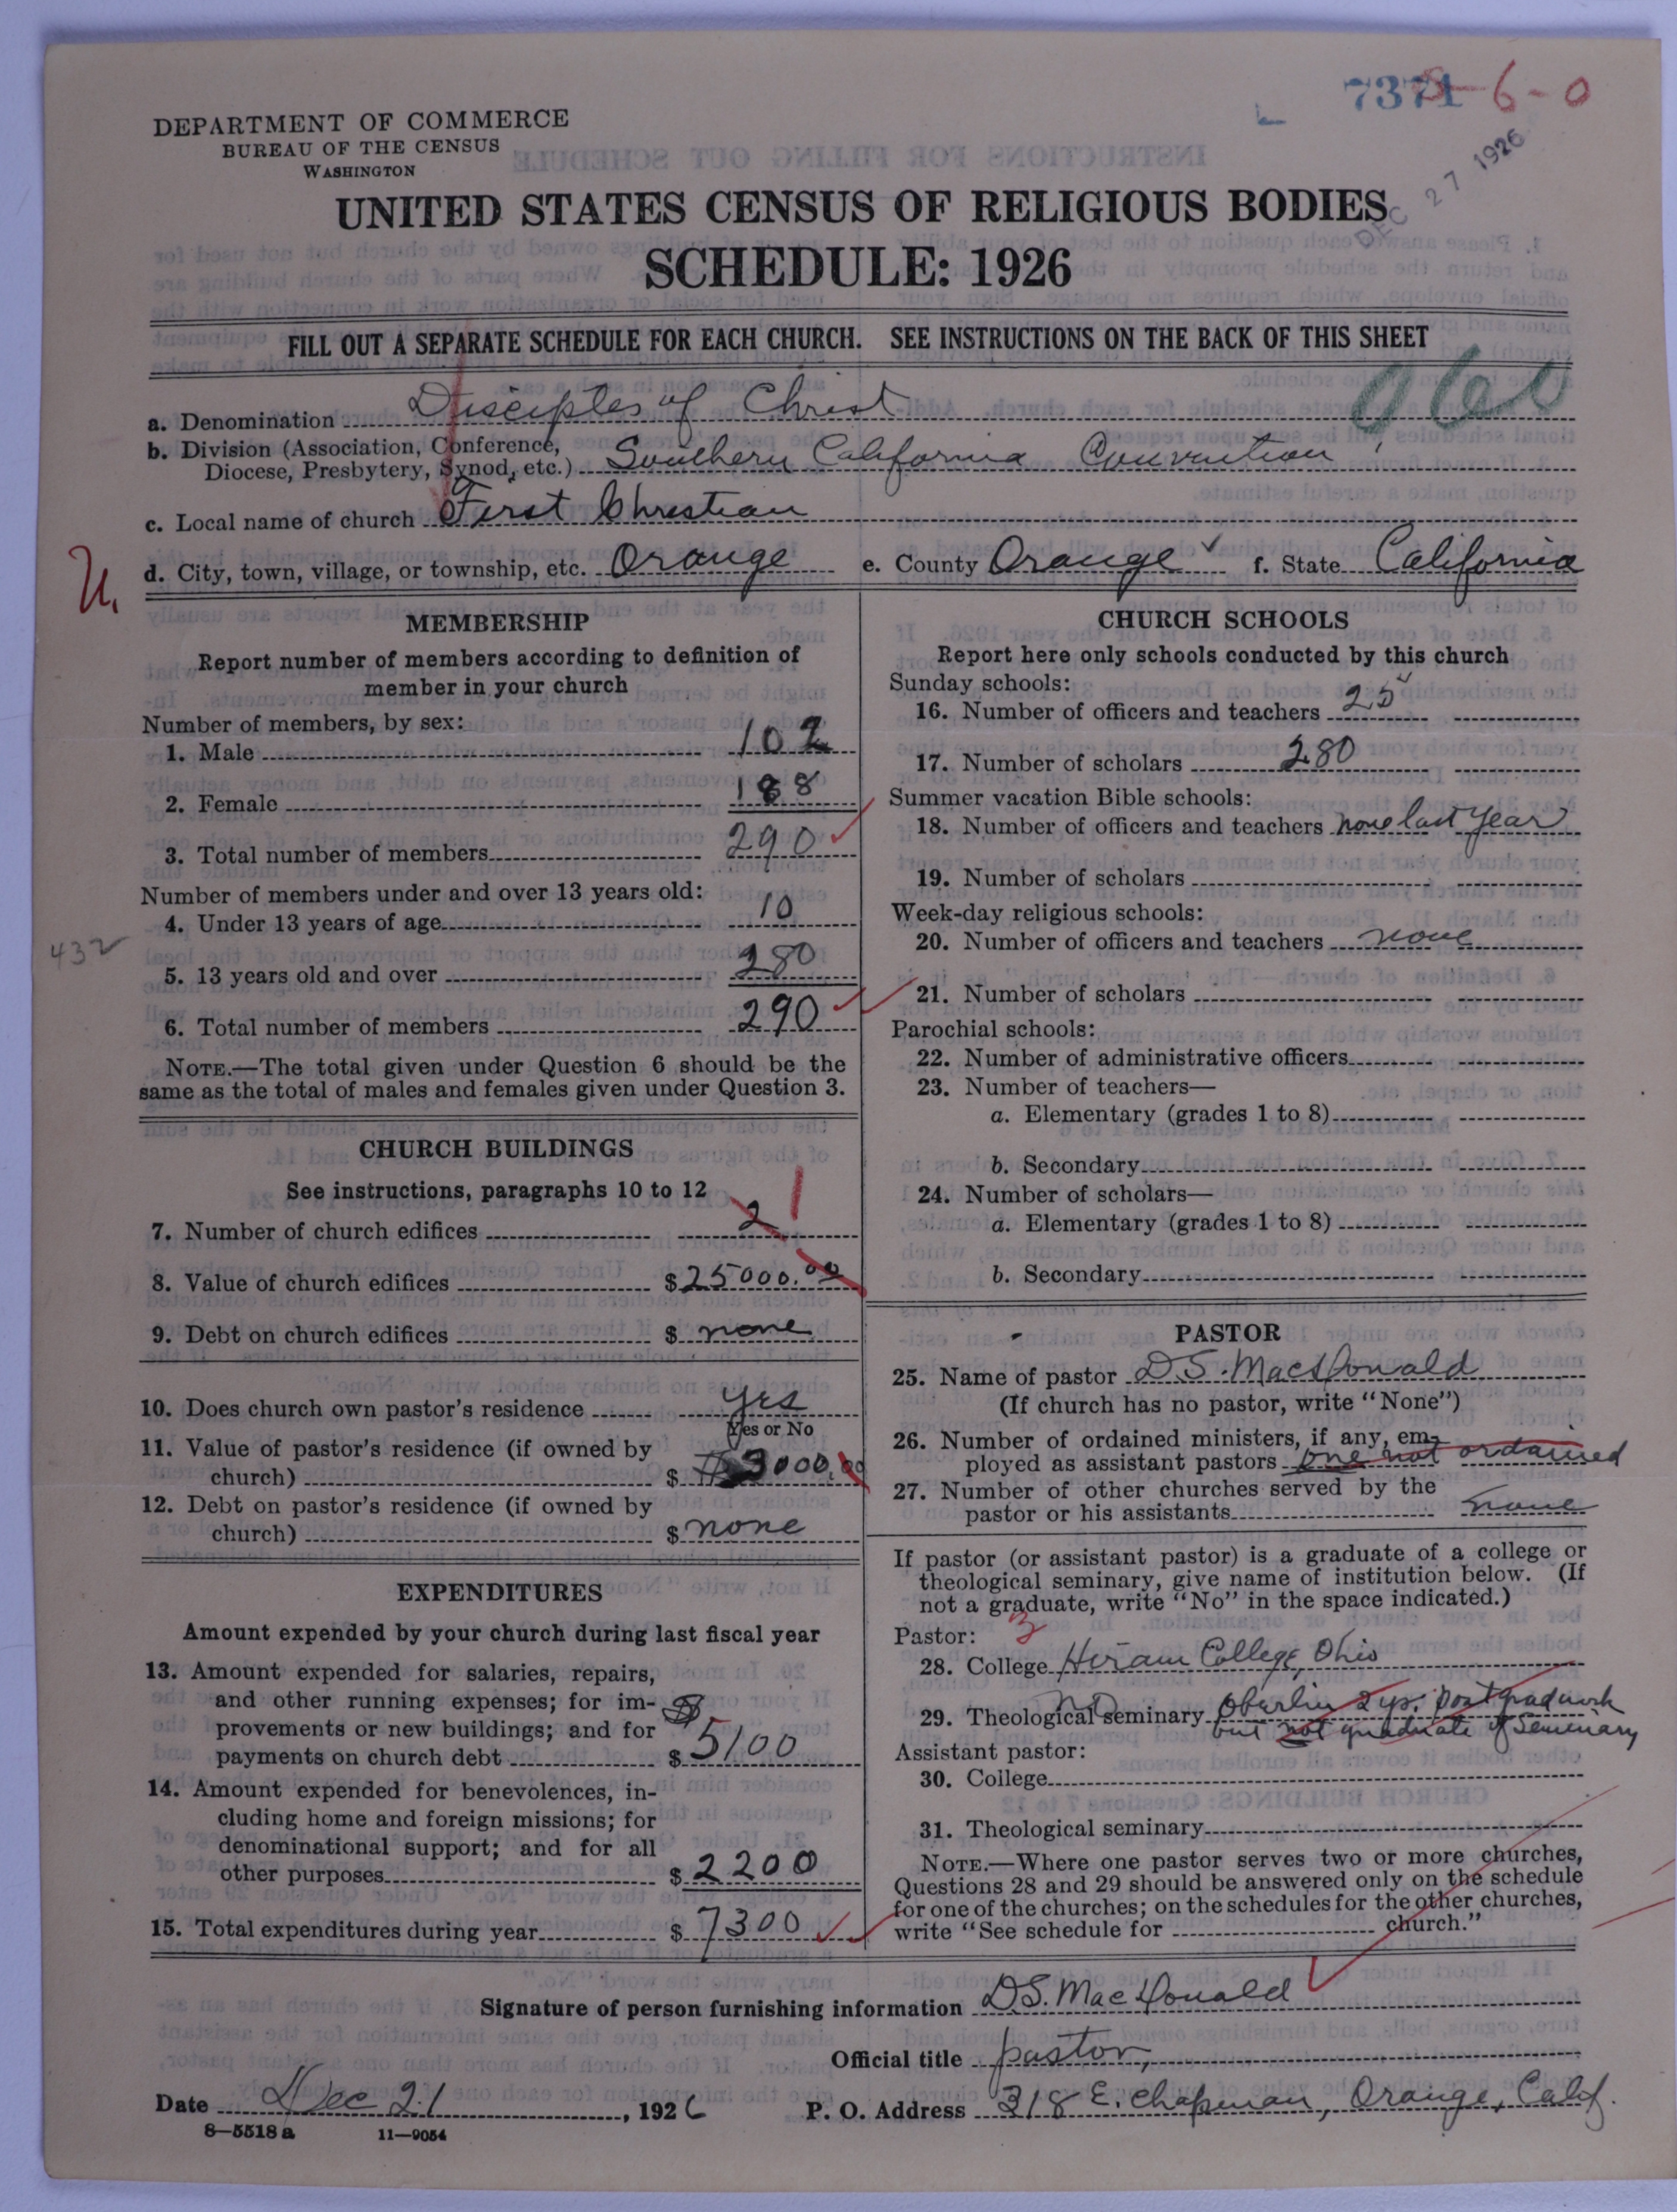 7371 5-6-0
DEPARTMENT OF COMMERCE
BUREAU OF THE CENSUS
WASHINGTON
DEC 27 1926
UNITED STATES CENSUS OF RELIGIOUS BODIES
SCHEDULE: 1926
FILL OUT A SEPARATE SCHEDULE FOR EACH CHURCH. SEE INSTRUCTIONS ON THE BACK OF THIS SHEET
a. Denomination Disciples of Christ
b. Division (Association, Conference,
Diocese, Presbytery, Synod, etc.) Southern California Convention
c. Local name of church First Christian
d. City, town, village, or township, etc. Orange e. County Orange f. State California
U.
MEMBERSHIP
Report number of members according to definition of
member in your church
Number of members, by sex:
1. Male 102
2. Female 188
3. Total number of members 290
Number of members under and over 13 years old:
4. Under 13 years of age 10
432
5. 13 years old and over 280
6. Total number of members 290
NOTE.—The total given under Question 6 should be the
same as the total of males and females given under Question 3.
CHURCH BUILDINGS
See instructions, paragraphs 10 to 12
7. Number of church edifices 2 1
8. Value of church edifices $ 25000.00
9. Debt on church edifices $ none
10. Does church own pastor's residence yes
Yes or No
11. Value of pastor's residence (if owned by
church) $ 3000.00
12. Debt on pastor's residence (if owned by
church) $ none
EXPENDITURES
Amount expended by your church during last fiscal year
13. Amount expended for salaries, repairs,
and other running expenses; for im-
provements or new buildings; and for
payments on church debt $ 5100
14. Amount expended for benevolences, in-
cluding home and foreign missions; for
denominational support; and for all
other purposes $ 2200
15. Total expenditures during year $ 7300
CHURCH SCHOOLS
Report here only schools conducted by this church
Sunday schools:
16. Number of officers and teachers 25
17. Number of scholars 280
Summer vacation Bible schools:
18. Number of officers and teachers none last year
19. Number of scholars
Week-day religious schools:
20. Number of officers and teachers none
21. Number of scholars
Parochial schools:
22. Number of administrative officers
23. Number of teachers—
a. Elementary (grades 1 to 8)
b. Secondary
24. Number of scholars—
a. Elementary (grades 1 to 8)
b. Secondary
PASTOR
25. Name of pastor D.S. MacDonald
(If church has no pastor, write "None")
26. Number of ordained ministers, if any, em-
ployed as assistant pastors one not ordained
27. Number of other churches served by the
pastor or his assistants none
If pastor (or assistant pastor) is a graduate of a college or
theological seminary, give name of institution below. (If
not a graduate, write "No" in the space indicated.)
Pastor: 3
28. College Hiram College, Ohio
29. Theological seminary no Oberlin 2 yr. postgrad work
but not graduate of Seminary
Assistant pastor:
30. College
31. Theological seminary
NOTE.—Where one pastor serves two or more churches,
Questions 28 and 29 should be answered only on the schedule
for one of the churches; on the schedules for the other churches,
write "See schedule for church."
Signature of person furnishing information D.S. MacDonald
Official title pastor,
Date Dec 21, 1926 P. O. Address 318 E. Chapman, Orange, Calif.
8—5518 a 11—9054